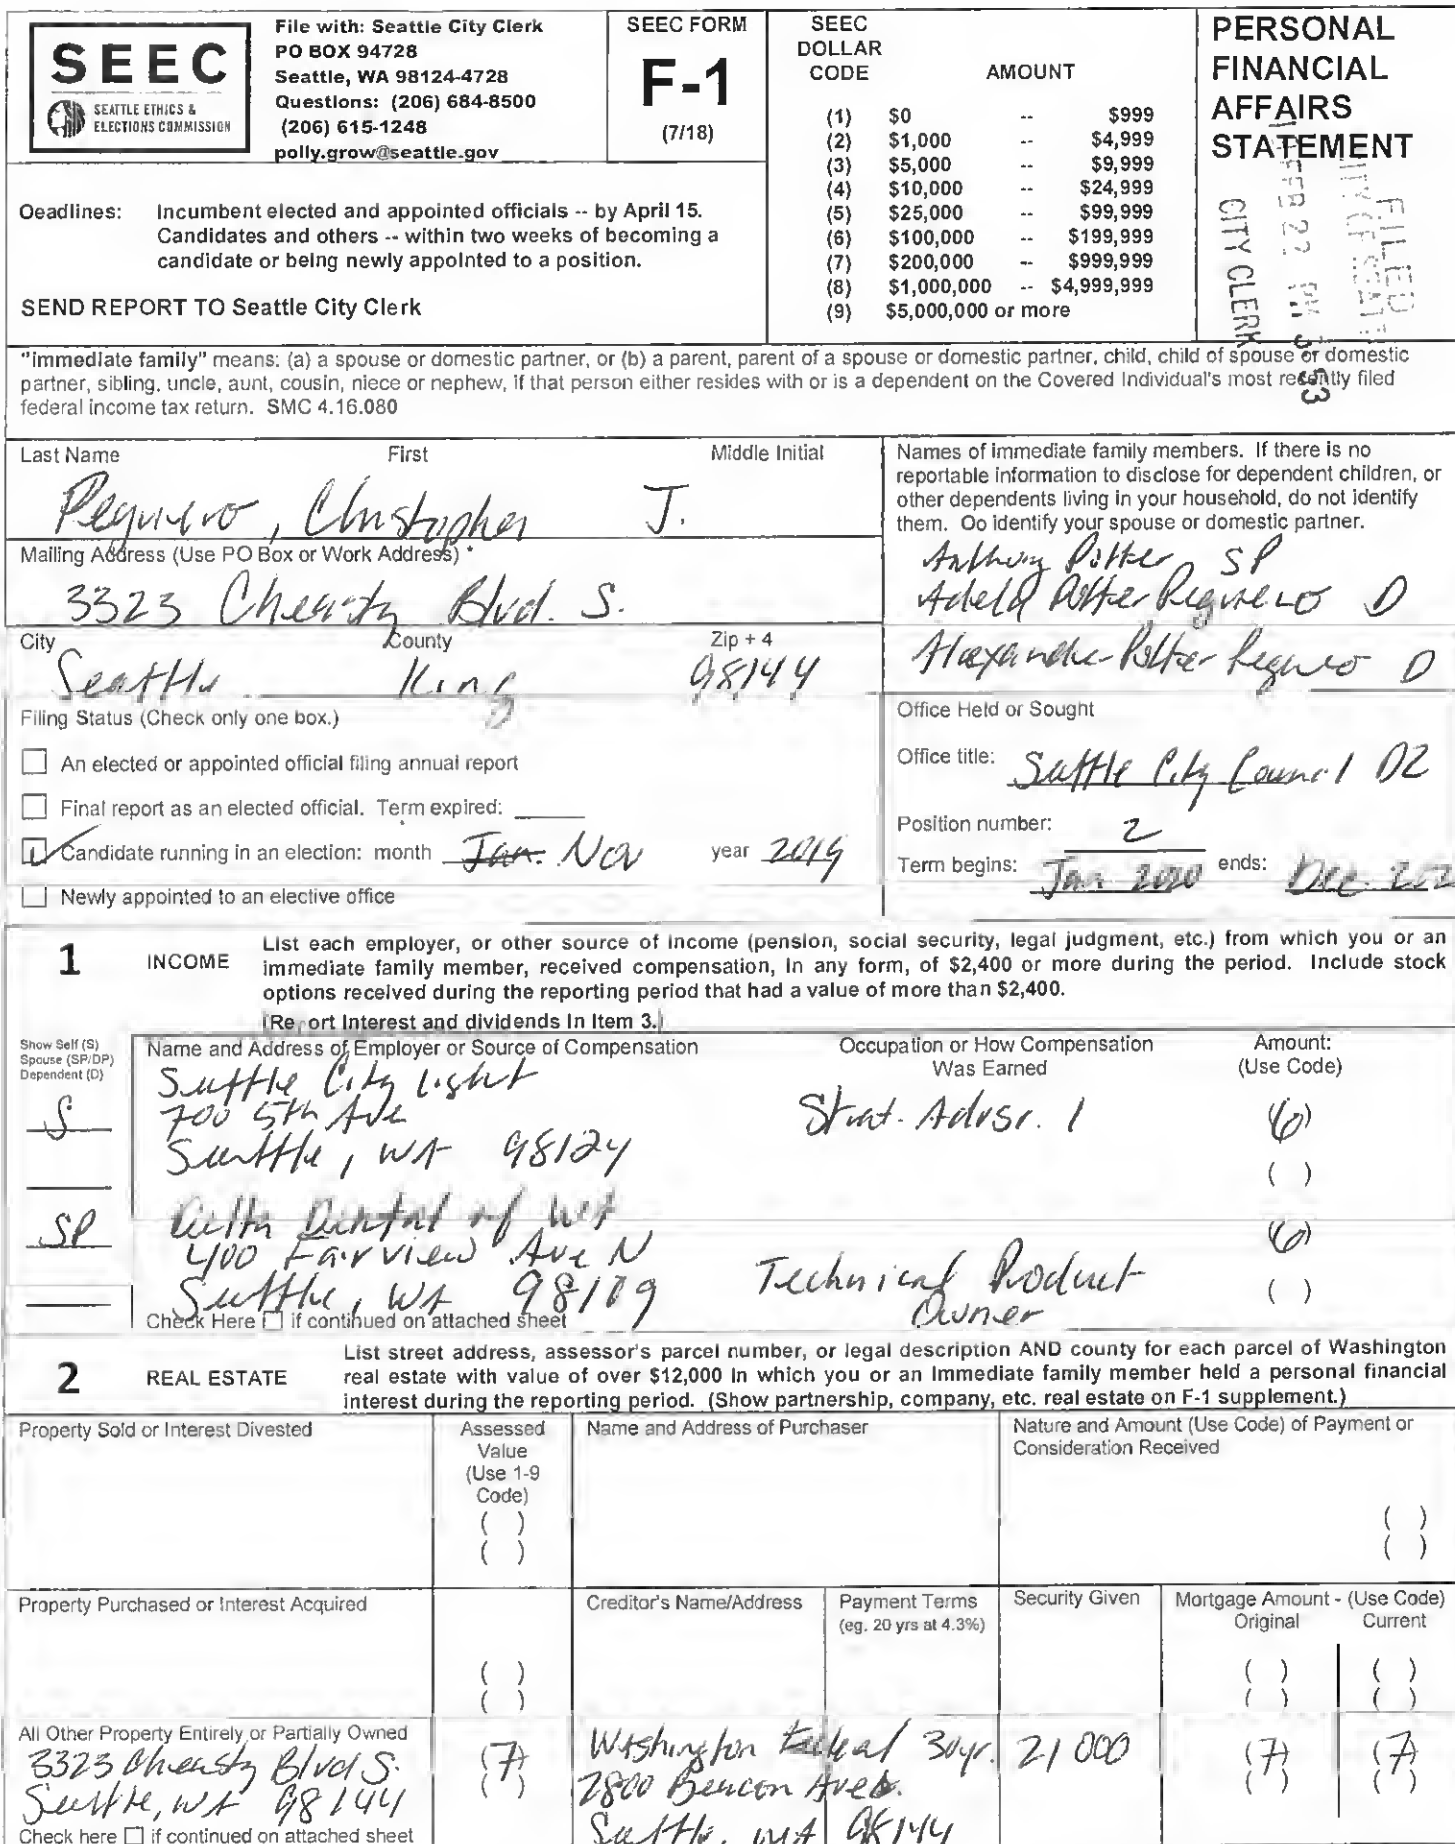 SEEC
SEATTLE ETHICS &
ELECTIONS COMMISSION
File with: Seattle City Clerk
PO BOX 94728
Seattle, WA 98124-4728
Questions: (206) 684-8500
(206) 615-1248
polly.grow@seattle.gov
SEEC FORM
F-1
(7/18)
SEEC
DOLLAR
CODE AMOUNT
(1) $0 -- $999
(2) $1,000 -- $4,999
(3) $5,000 -- $9,999
(4) $10,000 -- $24,999
(5) $25,000 -- $99,999
(6) $100,000 -- $199,999
(7) $200,000 -- $999,999
(8) $1,000,000 -- $4,999,999
(9) $5,000,000 or more
PERSONAL
FINANCIAL
AFFAIRS
STATEMENT
FILED
CITY OF SEATT
FEB 22 PM 3 53
CITY CLERK
Oeadlines: Incumbent elected and appointed officials -- by April 15.
Candidates and others -- within two weeks of becoming a
candidate or being newly appointed to a position.
SEND REPORT TO Seattle City Clerk
"immediate family" means: (a) a spouse or domestic partner, or (b) a parent, parent of a spouse or domestic partner, child, child of spouse or domestic
partner, sibling, uncle, aunt, cousin, niece or nephew, if that person either resides with or is a dependent on the Covered Individual's most recently filed
federal income tax return. SMC 4.16.080
Last Name First Middle Initial
Peguero, Christopher J.
Mailing Address (Use PO Box or Work Address) *
3323 Cheasty Blvd. S.
City County Zip + 4
Seattle King 98144
Names of immediate family members. If there is no
reportable information to disclose for dependent children, or
other dependents living in your household, do not identify
them. Oo identify your spouse or domestic partner.
Anthony Potter, SP
Adela Potter Peguero D
Alexandre Potter Peguero D
Filing Status (Check only one box.)
An elected or appointed official filing annual report
Final report as an elected official. Term expired:
Candidate running in an election: month Jan. Nov year 2019
Newly appointed to an elective office
Office Held or Sought
Office title: Seattle City Council D2
Position number: 2
Term begins: Jan 2020 ends: Dec 202
1 INCOME List each employer, or other source of income (pension, social security, legal judgment, etc.) from which you or an
immediate family member, received compensation, in any form, of $2,400 or more during the period. Include stock
options received during the reporting period that had a value of more than $2,400.
(Report Interest and dividends in Item 3.)
Show Self (S)
Spouse (SP/DP)
Dependent (D)
Name and Address of Employer or Source of Compensation
Occupation or How Compensation
Was Earned
Amount:
(Use Code)
Seattle City Light
S 700 5th Ave Strat. Advsr. 1 (6)
Seattle, WA 98124
( )
SP Delta Dental of WA (6)
400 Fairview Ave N Technical Product
Seattle, WA 98109 Owner ( )
Check Here if continued on attached sheet
2 REAL ESTATE List street address, assessor's parcel number, or legal description AND county for each parcel of Washington
real estate with value of over $12,000 in which you or an immediate family member held a personal financial
interest during the reporting period. (Show partnership, company, etc. real estate on F-1 supplement.)
Property Sold or Interest Divested
Assessed
Value
(Use 1-9
Code)
( )
( )
Name and Address of Purchaser
Nature and Amount (Use Code) of Payment or
Consideration Received
( )
( )
Property Purchased or Interest Acquired
( )
( )
Creditor's Name/Address
Payment Terms
(eg. 20 yrs at 4.3%)
Security Given
Mortgage Amount - (Use Code)
Original Current
( ) ( )
( ) ( )
All Other Property Entirely or Partially Owned
3323 Cheasty Blvd S. (7)
Seattle, WA 98144 ( )
Check here if continued on attached sheet
Washington Federal 30yr. 21000 (7) (7)
2800 Beacon Ave S. ( ) ( )
Seattle, WA 98144